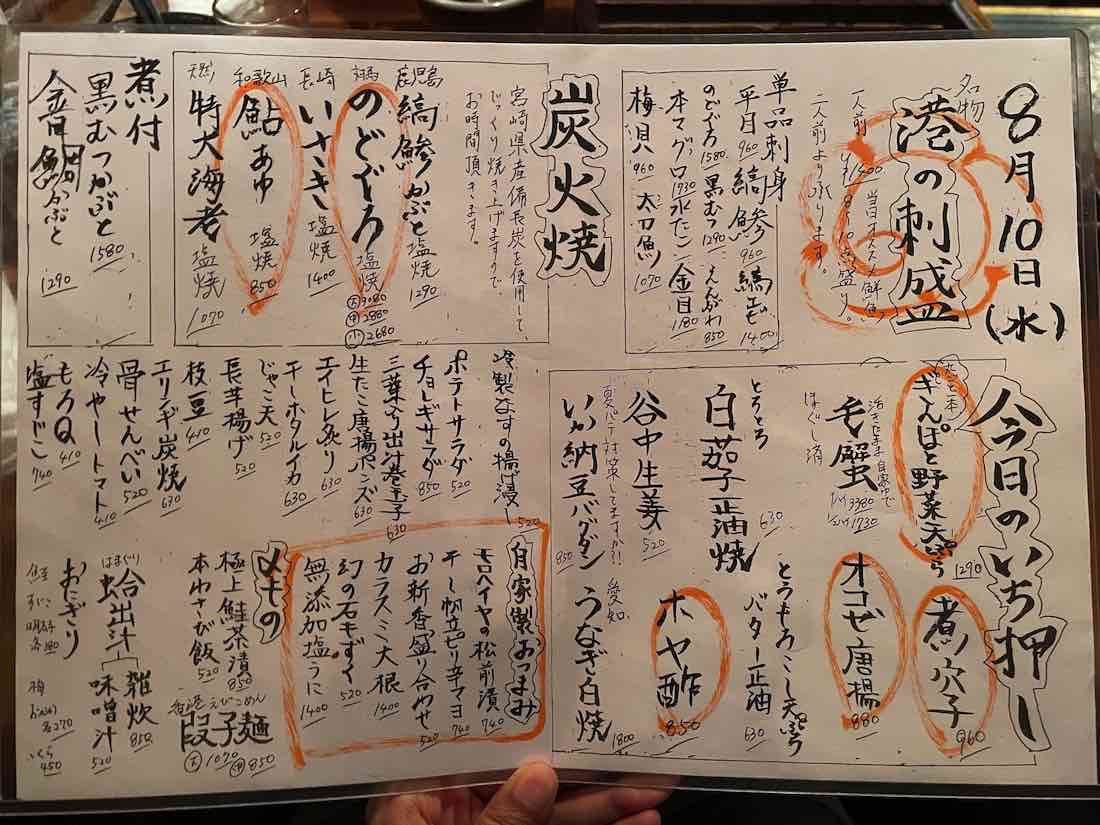 8月10日(水)
名物
港の刺盛
一人前 ¥1400 当日オススメ鮮魚 8〜10点盛り。
二人前より承ります。
単品刺身
平目 960 縞鯵 960 縞エビ 1400
のどぐろ 1580 黒むつ 1290 えんがわ 850
本マグロ 1730 水タコ 金目 1180
梅貝 960 太刀魚 1070
炭火焼
宮崎県産備長炭を使用して、
じっくり焼き上げますので、
お時間頂きます。
鹿児島 縞鯵かぶと 塩焼 1290
対馬 のどぐろ 塩焼 大3080 中2880 小2680
長崎 いさき 塩焼 1400
和歌山 鮎あゆ 塩焼 850
天然 特大海老 塩焼 1070
煮付
黒むつかぶと 1580
金目鯛かぶと 1290
今日のいち押し
ぎんぽと野菜天ぷら 1290
煮穴子 960
活きたまま自家ゆで
毛蟹 1/1 3380 1/2 1730
ほぐし済
オコゼ唐揚 880
とろとろ
白茄子正油焼 630
とうもろこし天ぷら
バター正油 630
谷中生姜 520
ホヤ酢 850
夏バテ対策してますか?!
いか納豆バクダン 850
愛知 うなぎ白焼 1800
冷製なすの揚げ浸し 520
ポテトサラダ 520
チョレギサラダ 850
三葉入り出汁巻玉子 630
生たこ唐揚ポンズ 630
エイヒレ炙り 630
干しホタルイカ 630
じゃこ天 520
長芋揚げ 520
枝豆 410
エリンギ炭焼 630
骨せんべい 520
冷やしトマト 410
もろQ 410
塩すじこ 740
自家製おつまみ
モロヘイヤの松前漬 740
干し帆立ピリ辛マヨ 740
お新香盛り合わせ 520
カラスミ大根 1400
幻の石モズク 520
無添加塩うに 1400
〆もの
極上鮭茶漬 850
本わさび飯 520
香港えびこめん
段子麺 大1070 中850
はまぐり
蛤出汁 雑炊 850
味噌汁 520
おにぎり
鮭 すじこ 明太子 各
梅 おかか 各270
いくら 450